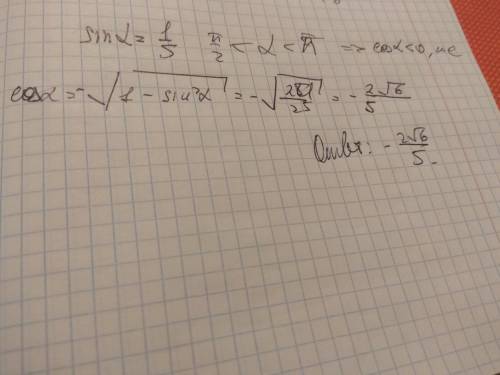 sinα = 1/5 π/2 < α < π => cosα<0, ие
cosα = -√(1 - sin²α) = -√(24/25) = - 2√6/5
Ответ: - 2√6/5.